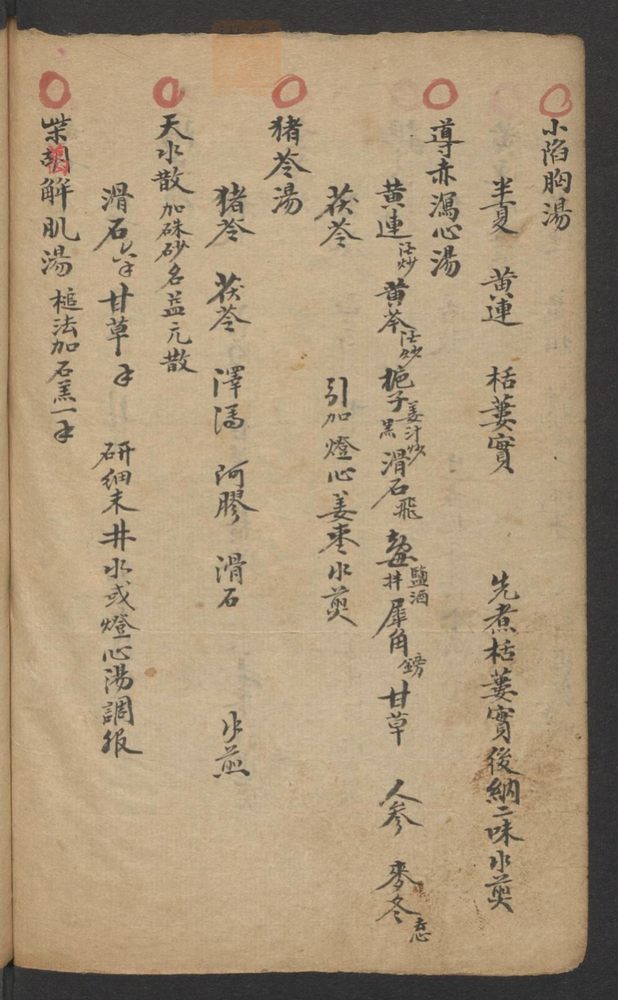 小陷胸湯
半夏 黃連 栝蔞實 先煮栝蔞實後納二味水煎
導赤瀉心湯
黃連酒炒 黃芩酒炒 梔子姜汁炒黑 滑石飛 知母鹽酒拌 犀角鎊 甘草 人參 麥冬去心
茯苓 引加燈心姜棗水煎
猪苓湯
猪苓 茯苓 澤瀉 阿膠 滑石 水煎
天水散 加硃砂名益元散
滑石六錢 甘草一錢 研細末井水或燈心湯調服
柴胡解肌湯 槌法加石羔一錢